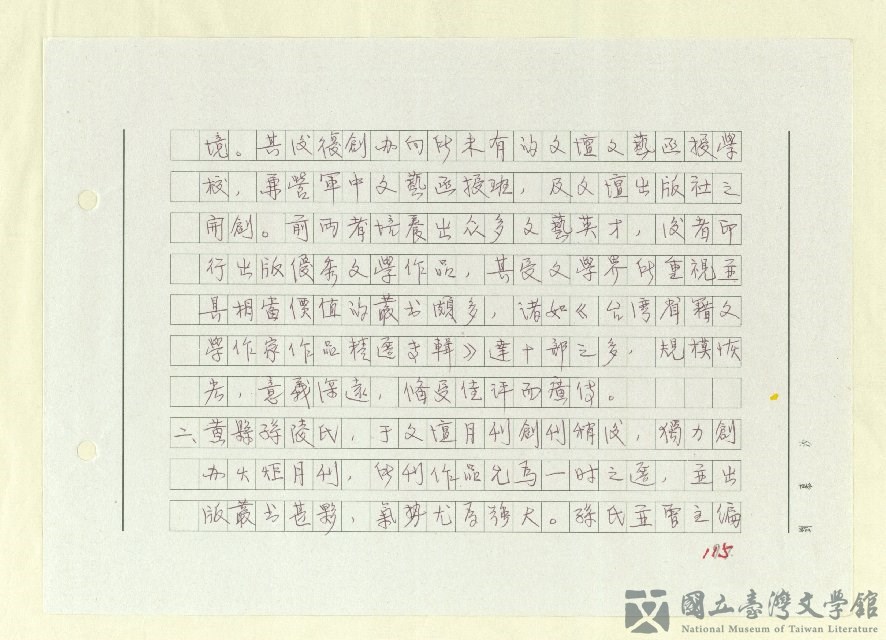 境。其後復創办向所未有的文壇文藝函授學
校，兼營軍中文藝函授班，及文壇出版社之
開創。前两者培養出众多文藝英才，後者印
行出版優秀文學作品，其受文學界所重視並
具相當價值的叢书頗多，諸如《台湾省籍文
學作家作品精選专輯》達十部之多，規模恢
宏，意義深遠，俻受佳评而廣传。
二、黄縣孫陵氏，于文壇月刊創刊稍後，獨力創
办火炬月刊，所刊作品尤為一时之選，並出
版叢书甚夥，氣势尤為強大。孫氏並曾主编
185.
國立臺灣文學館
National Museum of Taiwan Literature